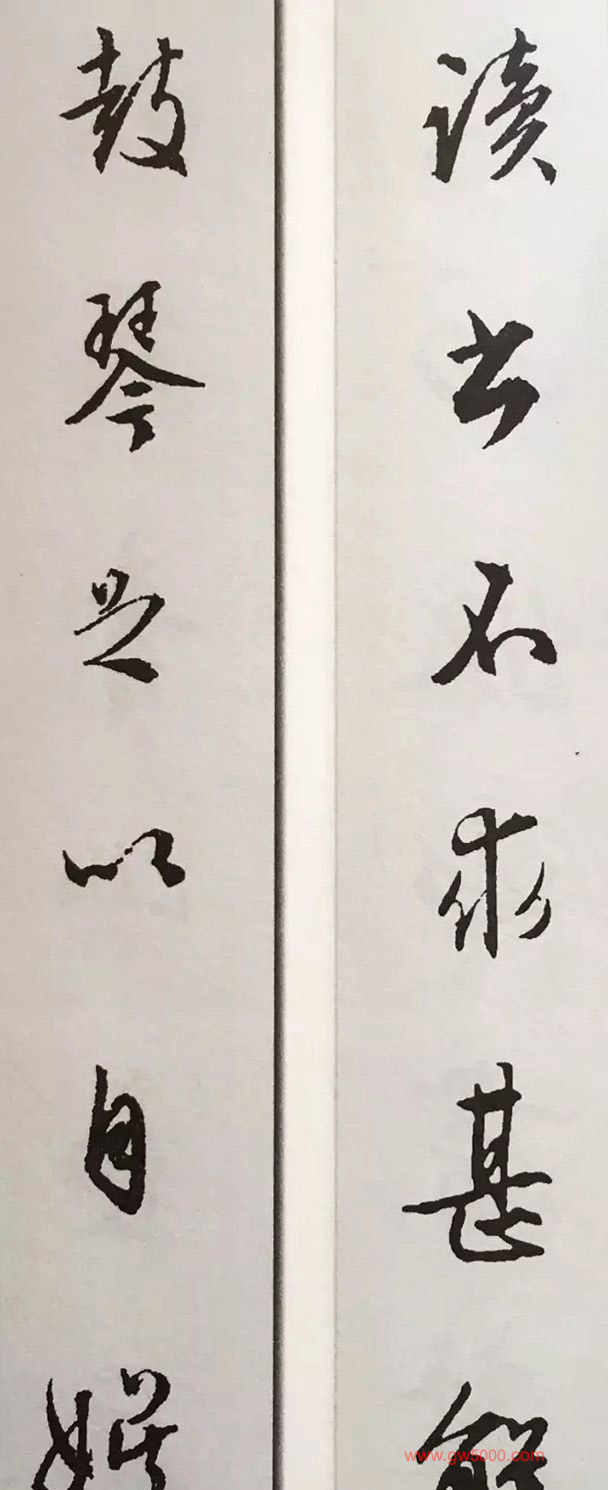 讀書不求甚解
鼓琴足以自娛
www.gw5000.com